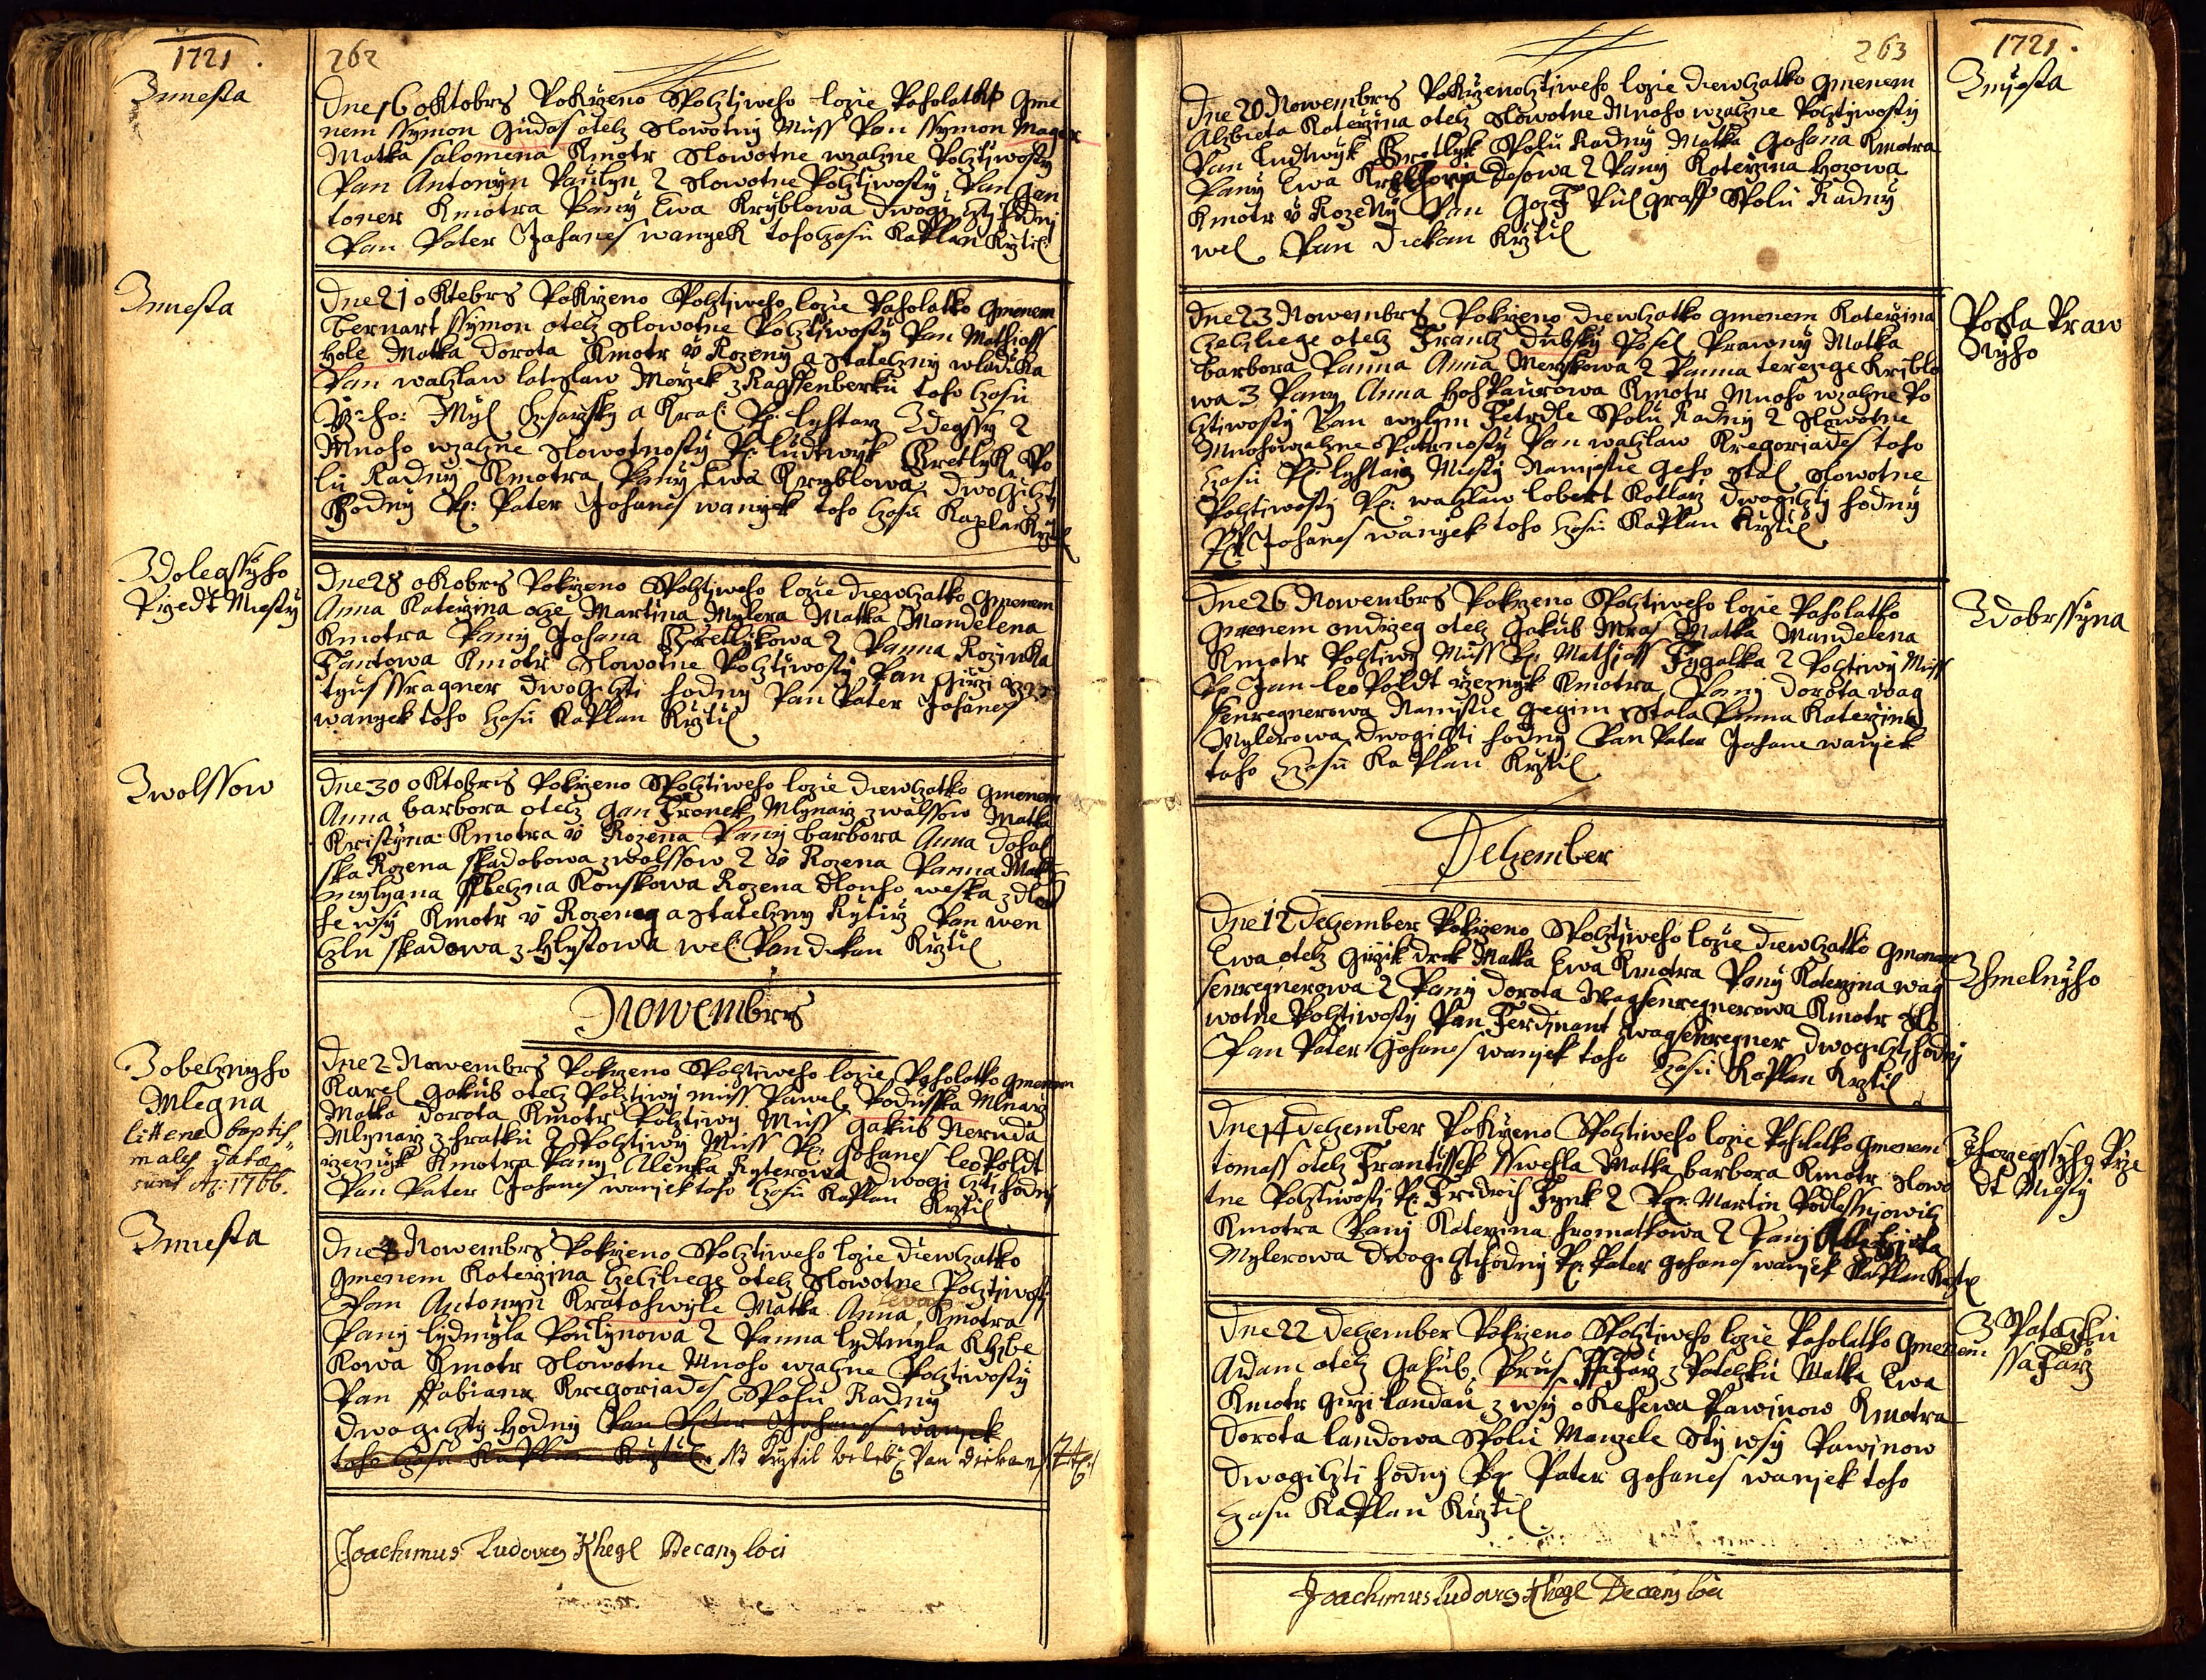 1721.
262
Zmiesta
Dne 16 oktobrs Pokrzeno Spolztiweho loze Paholatko gme
nem Ssymon Gudas otetz Slowotny Muss Pan Ssymon Mager
Matka Salomena Kmotr Slowotne wzatzne Poltztiwosty
Pan Antonyn Paulyn 2 Slowotne Poltztiwosty Pan Jan
toner Kmotra Pany Ewa Kryblowa dwogi tzty hodny
Pan Pater Johanes wanyek toho tzasu Kaplan Krztil
Zmiesta
Dne 21 oktebrs Pokrzeno Spoltztiweho loze Paholatko gmenem
bernart Ssymon otetz Slowotne Poltztiwosty Pan Mathiass
hole Matka dorota Kmotr u Rozeny a Statetzny wladika
Pan watzlaw latislaw Merzek z Ragssenberku toho tzasu
Mnoho wzatzne Slowotnosty P: ludwyk Bretlyk Spo
lu Radny Kmotra Pany Ewa Kryblowa dwogitzty
hodny P: Pater Johanes wanyek toho tzasu Kaplan Krztil
Zdolegssyho
Przedt Miesty
Dne 28 okobrs Pokrzeno Spoltztiweho loze diewtzatko gmenem
Anna Katerzina otze Martina Mylera Matka Mandelena
Kmotra Pany Johana Bretlykowa 2 Panna Rozinka
Fantowa Kmotr Slowotne Poltztiwosty Pan Girzi
tyus Ssragner dwogitzti hodny Pan Pater Johanes
wanyek toho tzasu Kaplan Krztil
Zwolssow
Dne 30 oktobris Pokrzeno Spoltztiweho loze diewtzatko gmenem
Anna barbora otetz Gan Fronek Mlynarz z walssow Matka
Kristyna Kmotra u Rozena Pany barbora Anna dohal
ska Rozena Skadobowa z wolssow 2 u Rozena Panna Maks
mylyana Konskowa Rozena dlouho weska z dlou
he wsy Kmotr u Rozeneg a Statetzny Rytirz Pan wen
tzln Skadowa z hlystowa wel: Pan diekan Krztil
Nowembrs
Zobetznyho
Mlegna
litterae baptis
males datae
sunt Ao: 1766.
Dne 2 Nowembrs Pokrzeno Spoltztiweho loze Paholatko gmenem
Karel Jakub otetz Poltztiwy muss Pawel Poduska Mlnarz
Matka dorota Kmotr Poltztiwy Muss Jakub Neruda
Mlynarz z hratku 2 Poltztiwy Muss P: Johanes leopoldt
rzeznyk Kmotra Pany Alenka Ryterowa dwogi tzti hodny
Pan Pater Johanes wanyek toho tzasu Kaplan Krztil
Zmiesta
Dne Nowembrs Pokrzeno Spoltztiweho loze diewtzatko
gmenem Katerzina tzetzliege otetz Slowotne Poltztiwosti
Pan Antonyn Kratohwyle Matka Anna Kmotra
Pany lydmyla Paulynowa 2 Panna lydtmyla
kowa Kmotr Slowotne Mnoho wzatzne Poltztiwosty
Pan Fabiana Kregoriades Spolu Radny
dwogitzty hodny Pan Pater Johanes wanyek
toho tzasu Kaplan Krztil. NB Krztil Pan Diekan
Joachimus Ludovicus Khegl Decanus loci
263
1721.
Zmiesta
Dne 20 Nowembris Pokrzeno ztiweho loze diewtzatko gmenem
Alzbieta Katerzina otetz Slowotne Mnoho wzatzne Poltztiwosty
Pan ludtwyk Bretlyk Spolu Radny Matka Johana Kmotra
Pany Ewa desowa 2 Pany Katerzina hozowa
Kmotr u Rozeny Pan Gozf graff Spolu Radny
wel Pan diekan Krztil
Posla Praw
nyho
Dne 23 Nowembrs Pokrzeno diewtzatko gmenem Katerzina
tzetzliege otetz Frantz dubsky Posel Prawny Matka
barbora Panna Anna Merzkowa 2 Panna terezige Kriblo
wa 3 Pany Anna hofpaurowa Kmotr Mnoho wzatzne Po
ltztiwosty Pan wylym Petrdle Spolu Radny 2 Slowotne
Mnohowzatzne Patrnosty Pan watzlaw Kregoriades toho
tzasu P: lyhtarz Miesty Namistie geho Stal Slowotne
Poltztiwosty P: watzlaw lobert Kollarz dwogitzty hodny
P: P: Johanes wanyek toho tzasu Kaplan Krztil
Zdobrssyna
Dne 26 Nowembrs Pokrzeno Spoltztiweho loze Paholatko
gmenem ondrzeg otetz Jakub Mraz Matka Mandelena
Kmotr Poltztiwy Muss P: Mathiass Fygalka 2 Poltztiwy Muss
P: Jan leopoldt rzeznyk Kmotra Pany dorota wag
senregnerowa Namistie gegim Stala Panna Katerzina
Mylerowa dwogitzti hodny Pan Pater Johanes wanyek
toho tzasu Kaplan Krztil
Detzember
Zhmelnyho
Dne 12 detzember Pokrzeno Spoltztiweho loze diewtzatko gmenem
Ewa otetz Girzik drak Matka Ewa Kmotra Pany Katerzina wag
senregnerowa 2 Pany dorota Wagsenregnerowa Kmotr Slo
wotne Poltztiwosty Pan Ferdinant Wagsenregner dwogitzti hodny
Pan Pater Johanes wanyek toho tzasu Kaplan Krztil
Zhorzegssyho Prze
dt Miesty
Dne 14 detzember Pokrzeno Spoltztiweho loze Paholatko gmenem
tomass otetz Frantissek Sswehla Matka barbora Kmotr Slowo
tne Poltztiwosti P: Fridrich Fynk 2 Pan Martin Podlessyowitz
Kmotra Pany Katerzina hromatkowa 2 Pany Alzbieta
Mylerowa dwogitzti hodny P: Pater Johanes wanyek Kaplan Krztil
Z Patetzku
ssafarz
Dne 22 detzember Pokrzeno Spoltztiweho loze Paholatko gmenem
Adam otetz Jakub Prus Ssafarz z Patetzku Matka Ewa
Kmotr Girzi landau z wsy Pawinow Kmotra
dorota landowa Spolu Manzele Sty wsy Pawinow
dwogitzti hodny P: Pater Johanes wanyek toho
tzasu Kaplan Krztil
Joachimus Ludovicus Khegl Decanus loci